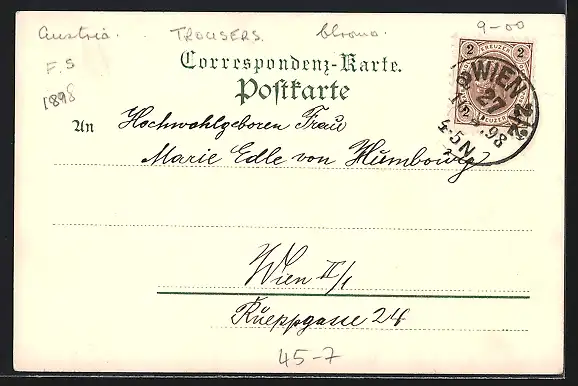 Austria. . TROUSERS. Chromo. 9-00
F.S
1898
Correspondenz-Karte.
Postkarte
An Hochwohlgeboren Frau
Marie Edle von Humbourg
Wien II/1
Rueppgasse 24
45-7
2 KREUZER 2
2 KREUZER 2
WIEN
27
98
4-5N